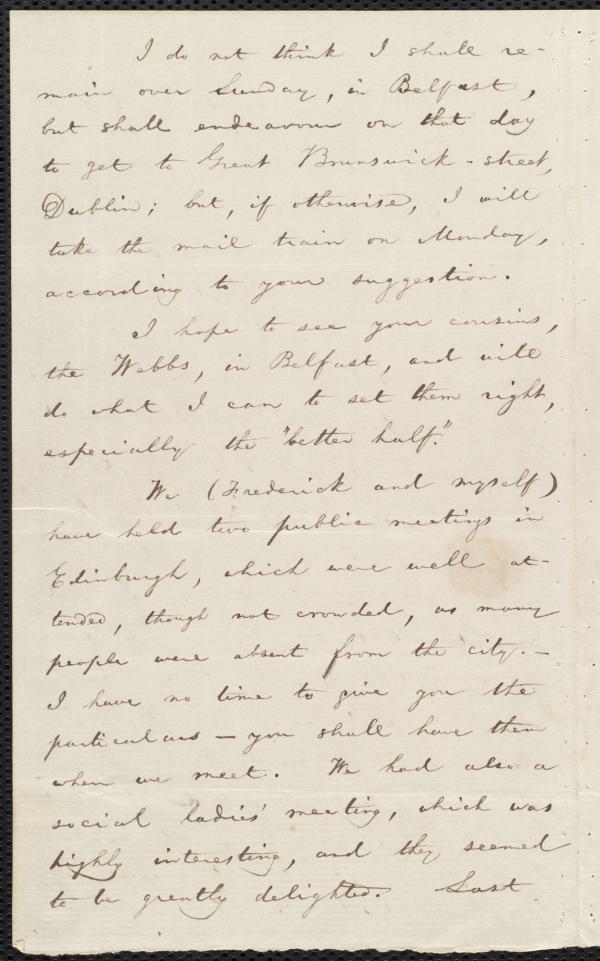 I do not think I shall re-
main over Sunday, in Belfast,
but shall endeavour on that day
to get to Great Brunswick-street,
Dublin; but, if otherwise, I will
take the mail train on Monday,
according to your suggestion.
I hope to see your cousins,
the Webbs, in Belfast, and will
do what I can to set them right,
especially the "better half."
We (Frederick and myself)
have held two public meetings in
Edinburgh, which were well at-
tended, though not crowded, as many
people were absent from the city.—
I have no time to give you the
particulars — you shall have them
when we meet. We had also a
social ladies' meeting, which was
highly interesting, and they seemed
to be greatly delighted. Last